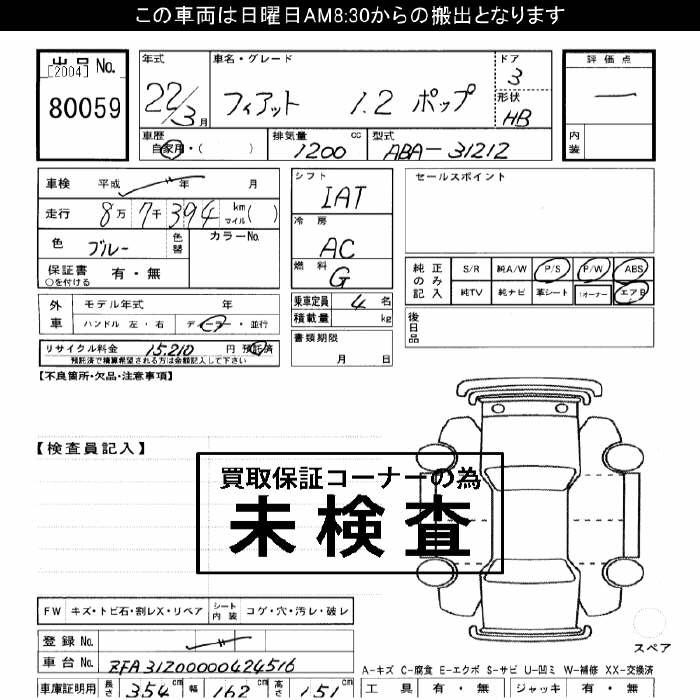 この車両は日曜日AM8:30からの搬出となります
出品 No.
[2004]
80059
年式 22/3月
車名・グレード フィアット 1.2 ポップ
ドア 3
形状 HB
評価点 ー
内装
車歴 自家用・( )
排気量 1200 cc
型式 ABA-31212
車検 平成 年 月
走行 8万7千394 km マイル( )
色 ブルー
色替
カラーNo.
保証書 ○を付ける 有・無
シフト IAT
冷房 AC
燃料 G
乗車定員 4名
積載量 kg
書類期限 月 日
セールスポイント
純正のみ記入 S/R 純A/W P/S P/W ABS
純TV 純ナビ 革シート 1オーナー エアB
後日品
外車 モデル年式 年
ハンドル 左・右 ディーラー・並行
リサイクル料金 15,210 円 預託済
預託済で積算希望される方は金額記入して下さい
【不良箇所・欠品・注意事項】
【検査員記入】
買取保証コーナーの為
未検査
FW キズ・トビ石・割レX・リペア シート内装 コゲ・穴・汚レ・破レ
登録 No.
車台 No. ZFA31200000424516
車庫証明用 長さ 354 cm 幅 162 cm 高さ 151 cm
スペア
A-キズ C-腐食 E-エクボ S-サビ U-凹ミ W-補修 XX-交換済
工具 有・無 ジャッキ 有・無